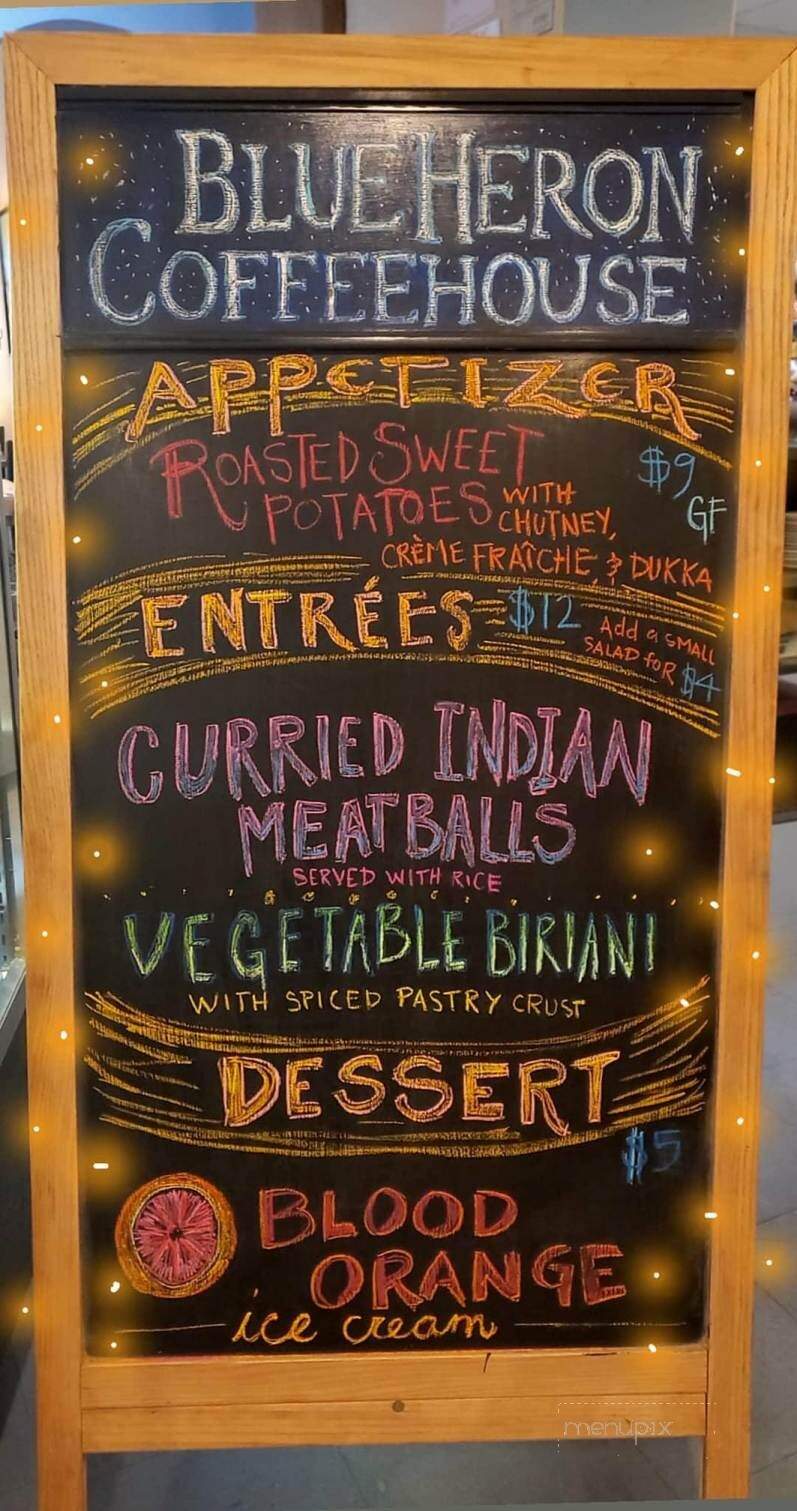 BLUE HERON
COFFEEHOUSE
APPETIZER
ROASTED SWEET $9
POTATOES WITH
CHUTNEY, GF
CRÈME FRAÎCHE, & DUKKA
ENTRÉES $12 Add a SMALL
SALAD FOR $4
CURRIED INDIAN
MEATBALLS
SERVED WITH RICE
VEGETABLE BIRIANI
WITH SPICED PASTRY CRUST
DESSERT
$5
BLOOD
ORANGE
ice cream
menupix